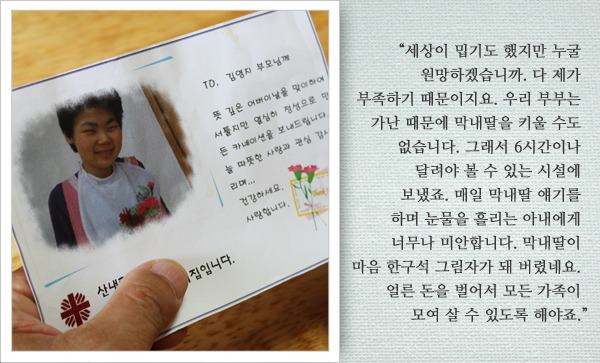 TO, 김영지 부모님께
뜻 깊은 어버이날을 맞이하여
서툴지만 열심히 정성으로 만
든 카네이션을 보내드립니다.
늘 따뜻한 사랑과 관심 감사
리며...
건강하세요.
사랑합니다.
집입니다.
“세상이 밉기도 했지만 누굴
원망하겠습니까. 다 제가
부족하기 때문이지요. 우리 부부는
가난 때문에 막내딸을 키울 수도
없습니다. 그래서 6시간이나
달려야 볼 수 있는 시설에
보냈죠. 매일 막내딸 얘기를
하며 눈물을 흘리는 아내에게
너무나 미안합니다. 막내딸이
마음 한구석 그림자가 돼 버렸네요.
얼른 돈을 벌어서 모든 가족이
모여 살 수 있도록 해야죠.”